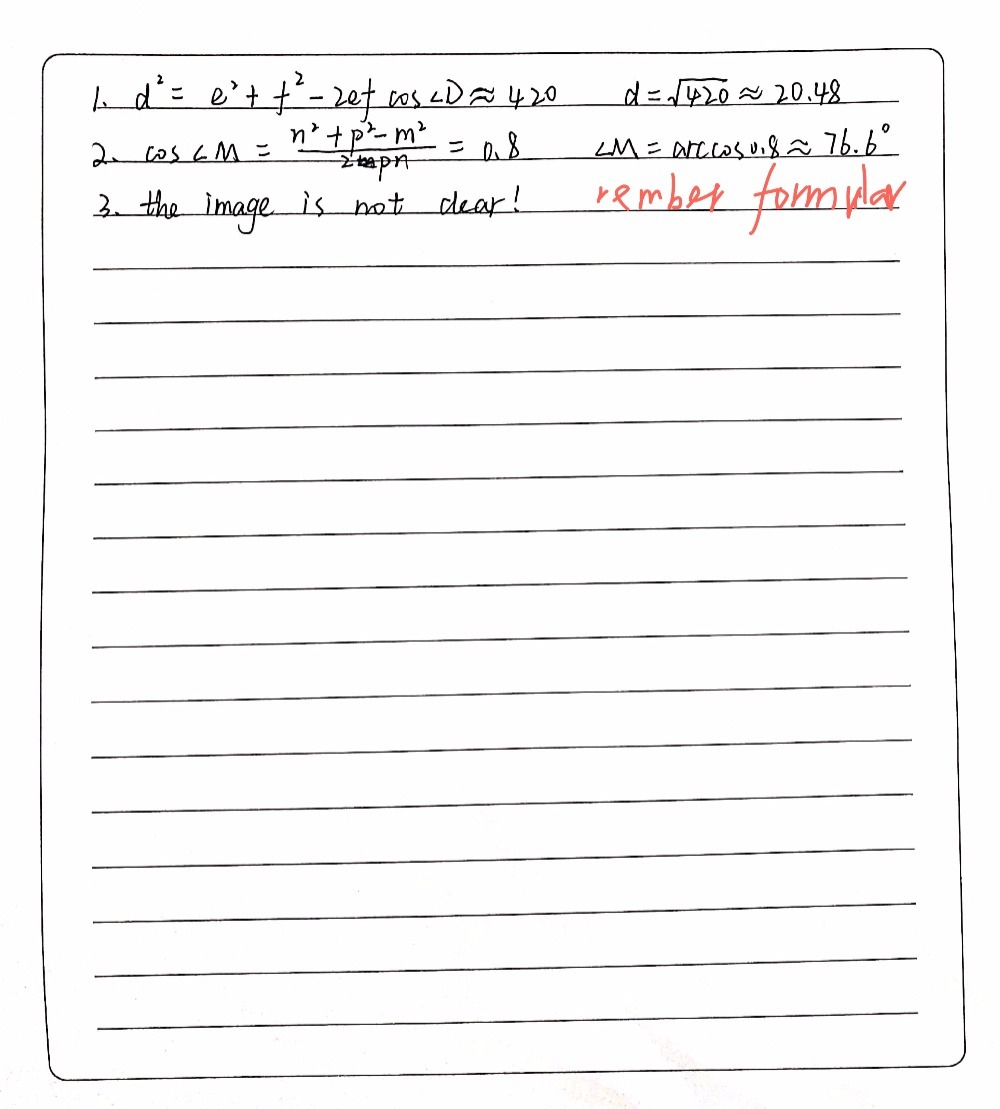 1. d² = e² + f² - 2ef cos∠D ≈ 420 d = √420 ≈ 20.48
2. cos∠M = (n² + p² - m²)/(2pn) = 0.8 ∠M = arccos0.8 ≈ 76.6°
3. the image is not clear! rember formular